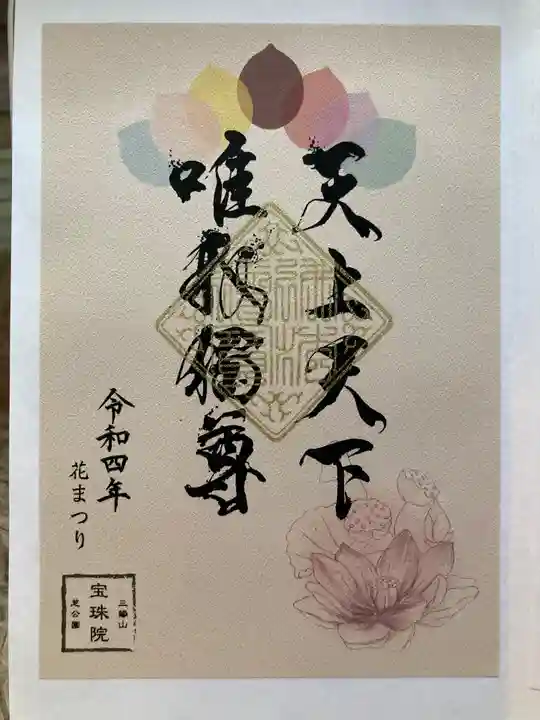 天上天下
唯我獨尊
令和四年
花まつり
三縁山
宝珠院
芝公園